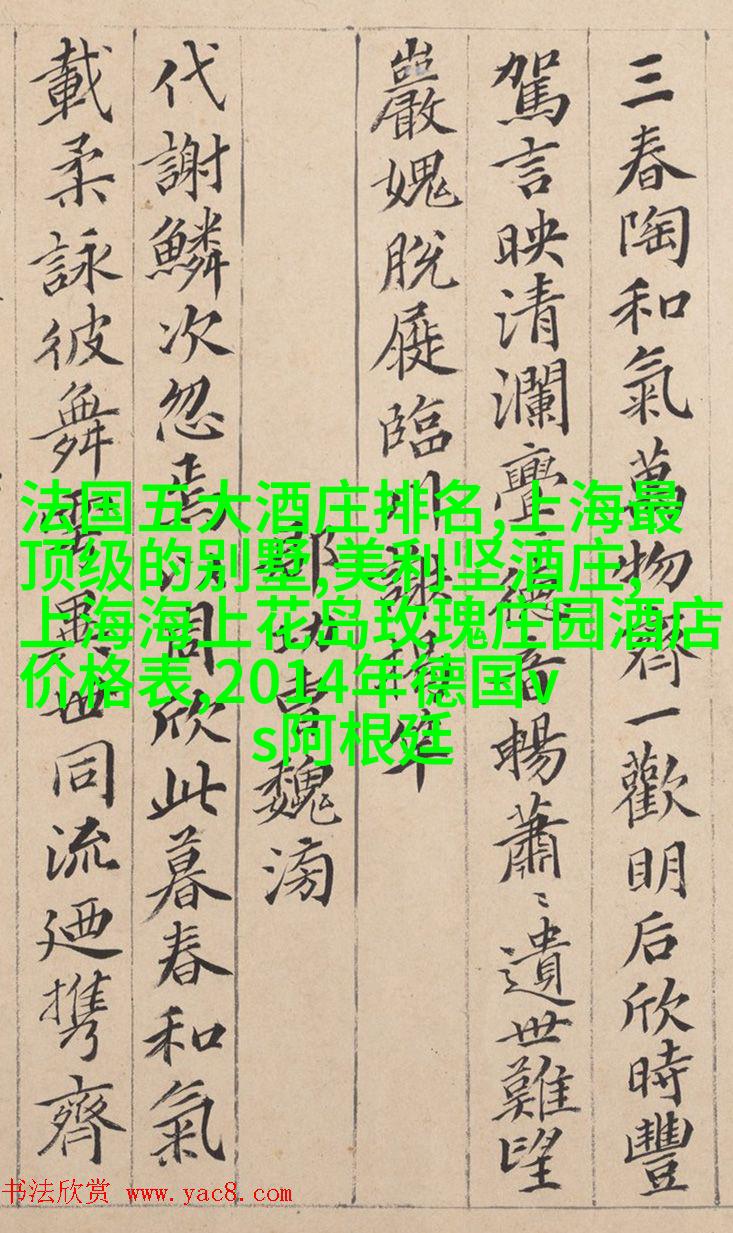 三春陶和氣萬物齊一歡明后欣時豐
駕言映清瀾亹〻德音暢蕭〻遺世難望
巖愧脫屣臨川謝揭竿
郡功曹魏滂
代謝鱗次忽焉以周欣此暮春和氣
載柔詠彼舞雩異世同流廼携齊
法国五大酒庄排名,上海最
顶级的别墅,美利坚酒庄,
上海海上花岛玫瑰庄园酒店
价格表,2014年德国v
s阿根廷
书法欣赏 www.yac8.com